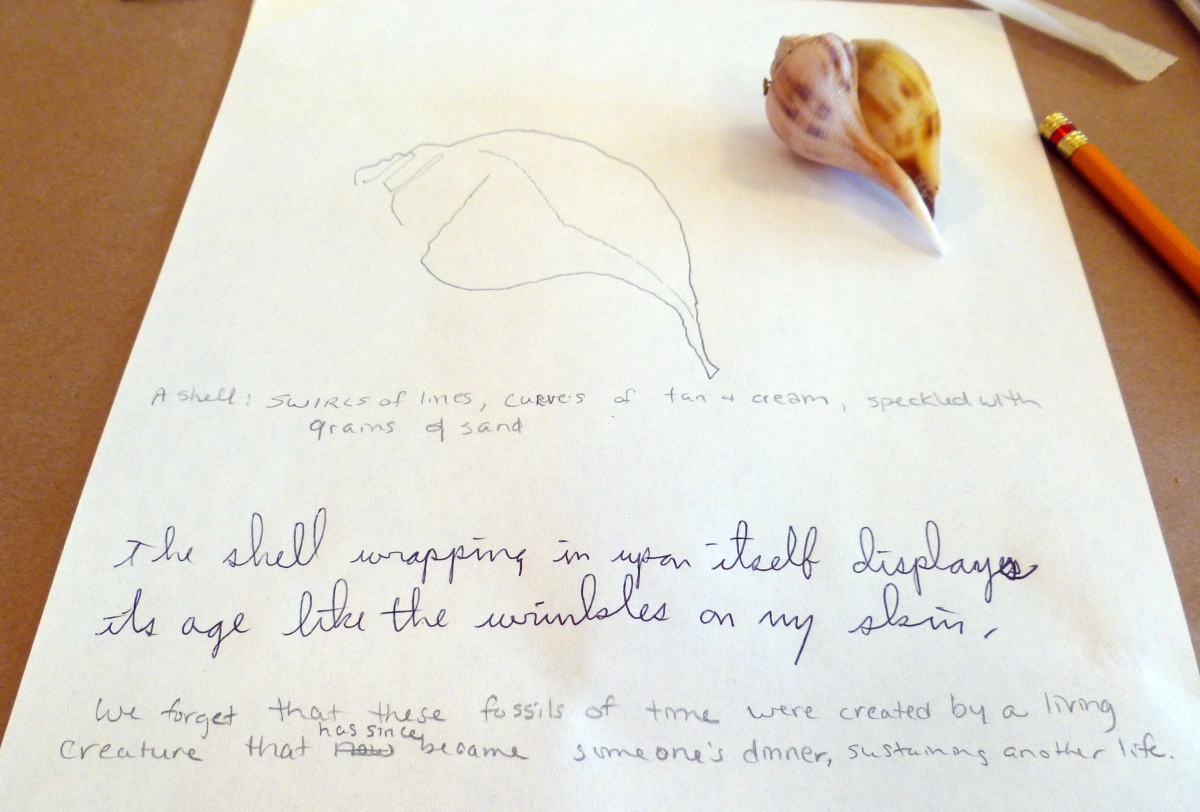 A shell: swirls of lines, curves of tan + cream, speckled with
grains of sand
The shell wrapping in upon itself displays
its age like the wrinkles on my skin.
We forget that these fossils of time were created by a living
has since
creature that now became someone's dinner, sustaining another life.